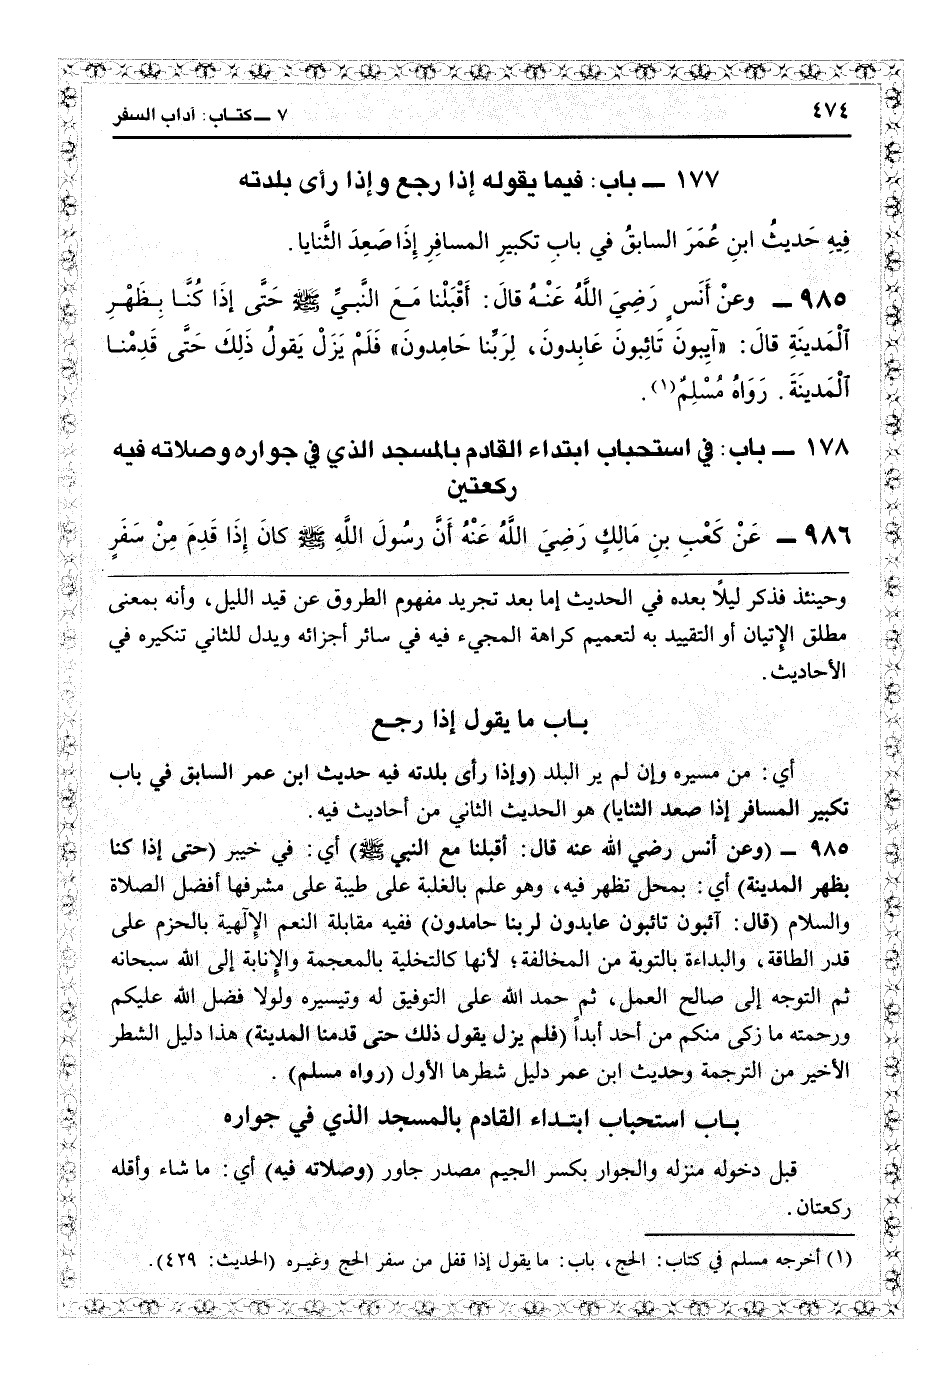 ٤٧٤
٧ ــ كتاب: آداب السفر
١٧٧ ــ باب: فيما يقوله إذا رجع وإذا رأى بلدته
فِيهِ حَديثُ ابنِ عُمَرَ السابقُ في بابِ تكبيرِ المسافرِ إِذَا صَعِدَ الثَّنايا.
٩٨٥ ــ وعنْ أَنَسٍ رَضِيَ اللَّهُ عَنْهُ قالَ: أَقْبَلْنا مَعَ النَّبيِّ ﷺ حَتَّى إذَا كُنَّا بِظَهْرِ
ٱلْمَدينَةِ قالَ: «آيِبونَ تَائِبونَ عَابِدونَ، لِرَبِّنا حَامِدونَ» فَلَمْ يَزَلْ يَقولُ ذَلكَ حَتَّى قَدِمْنا
ٱلْمَدينَةَ. رَوَاهُ مُسْلِمٌ(١).
١٧٨ ــ باب: في استحباب ابتداء القادم بالمسجد الذي في جواره وصلاته فيه
ركعتين
٩٨٦ ــ عَنْ كَعْبِ بنِ مَالِكٍ رَضِيَ اللَّهُ عَنْهُ أَنَّ رسُولَ اللَّهِ ﷺ كانَ إِذَا قَدِمَ مِنْ سَفَرٍ
وحينئذ فذكر ليلاً بعده في الحديث إما بعد تجريد مفهوم الطروق عن قيد الليل، وأنه بمعنى
مطلق الإتيان أو التقييد به لتعميم كراهة المجيء فيه في سائر أجزائه ويدل للثاني تنكيره في
الأحاديث.
بـاب ما يقول إذا رجـع
أي: من مسيره وإن لم ير البلد (وإذا رأى بلدته فيه حديث ابن عمر السابق في باب
تكبير المسافر إذا صعد الثنايا) هو الحديث الثاني من أحاديث فيه.
٩٨٥ ــ (وعن أنس رضي الله عنه قال: أقبلنا مع النبي ﷺ) أي: في خيبر (حتى إذا كنا
بظهر المدينة) أي: بمحل تظهر فيه، وهو علم بالغلبة على طيبة على مشرفها أفضل الصلاة
والسلام (قال: آئبون تائبون عابدون لربنا حامدون) ففيه مقابلة النعم الإلٓهية بالحزم على
قدر الطاقة، والبداءة بالتوبة من المخالفة؛ لأنها كالتخلية بالمعجمة والإنابة إلى الله سبحانه
ثم التوجه إلى صالح العمل، ثم حمد الله على التوفيق له وتيسيره ولولا فضل الله عليكم
ورحمته ما زكى منكم من أحد أبداً (فلم يزل يقول ذلك حتى قدمنا المدينة) هذا دليل الشطر
الأخير من الترجمة وحديث ابن عمر دليل شطرها الأول (رواه مسلم).
بـاب استحباب ابتـداء القادم بالمسجد الذي في جواره
قبل دخوله منزله والجوار بكسر الجيم مصدر جاور (وصلاته فيه) أي: ما شاء وأقله
ركعتان.
(١) أخرجه مسلم في كتاب: الحج، باب: ما يقول إذا قفل من سفر الحج وغيره (الحديث: ٤٢٩).